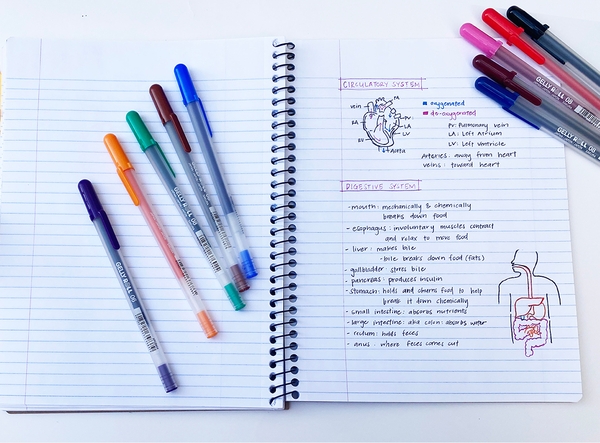 CIRCULATORY SYSTEM
vein
PA
RA
PV
LA
LV
RV
Aorta
oxygenated
de-oxygenated
PV: Pulmonary vein
LA: Left Atrium
LV: Left Ventricle
Arteries: away from heart
veins: toward heart
DIGESTIVE SYSTEM
- mouth: mechanically & chemically
breaks down food
- esophagus: involuntary muscles contract
and relax to move food
- liver: makes bile
- bile breaks down food (fats)
- gallbladder: stores bile
- pancreas: produces insulin
- stomach: holds and churns food to help
break it down chemically
- small intestine: absorbs nutrients
- large intestine: aka colon: absorbs water
- rectum: holds feces
- anus: where feces comes out
GELLY ROLL 06
GELLY ROLL 08
GELLY ROLL 08